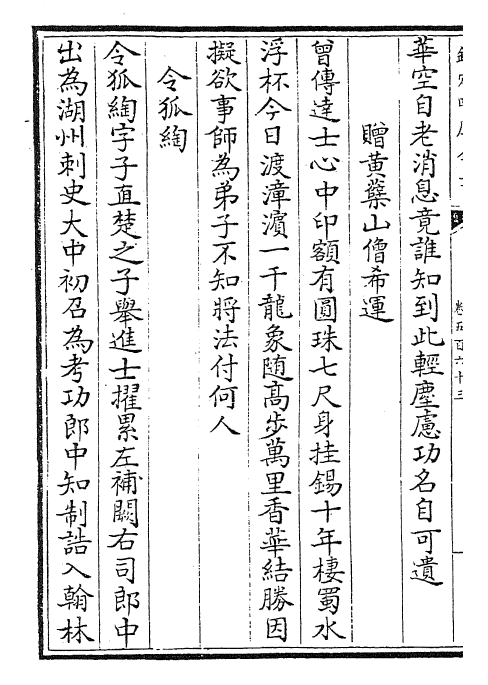 華空自老消息竟誰知到此輕塵慮功名自可遺
贈黄蘗山僧希運
曾傳達士心中印額有圓珠七尺身挂錫十年棲蜀水
浮杯今日渡漳濱一千龍象隨髙歩萬里香華結勝因
擬欲事師為弟子不知將法付何人
令狐綯
令狐綯字子直楚之子舉進士擢累左補闕右司郎中
出為湖州刺史大中初召為考功郎中知制誥入翰林
卷五百六十三